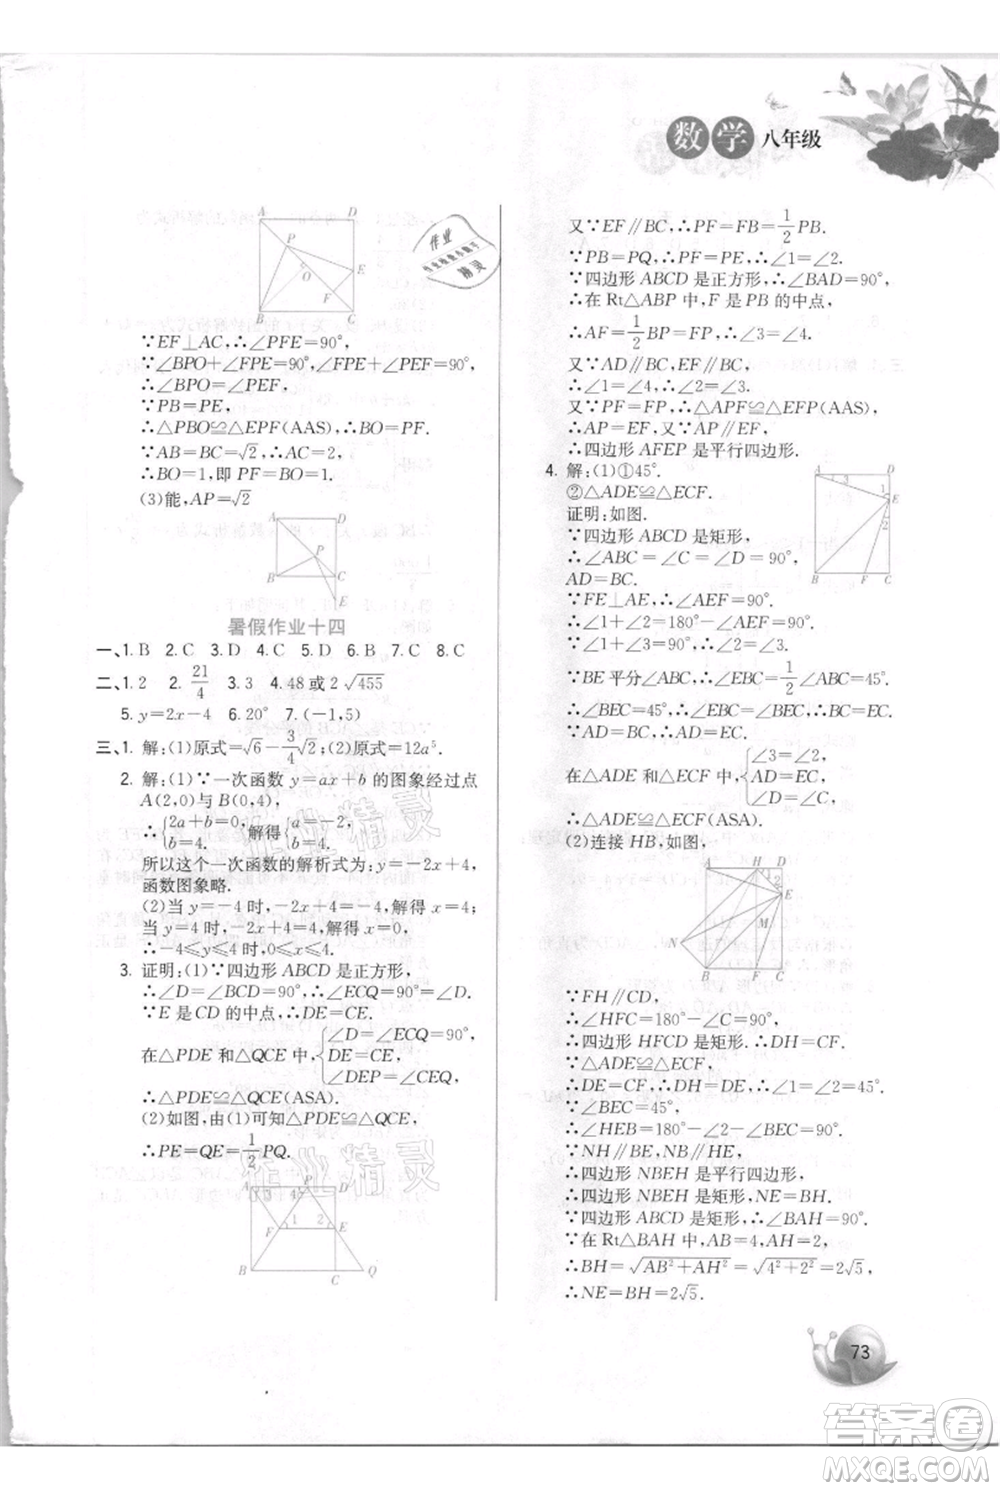 数学 八年级
作业
精灵
A D
P
O
E
F
B C
∵EF⊥AC,∴∠PFE=90°,
∴∠BPO+∠FPE=90°,∠FPE+∠PEF=90°,
∴∠BPO=∠PEF.
∵PB=PE,
∴△PBO≌△EPF(AAS),∴BO=PF.
∵AB=BC=√2,∴AC=2,
∴BO=1,即PF=BO=1.
(3)能,AP=√2
A D
P
B C
E
暑假作业十四
一、1. B 2. C 3. D 4. C 5. D 6. B 7. C 8. C
二、1. 2 2. 21/4 3. 3 4. 48或2√455
5. y=2x-4 6. 20° 7. (-1,5)
三、1. 解:(1)原式=√6-3/4√2;(2)原式=12a⁵.
2. 解:(1)∵一次函数y=ax+b的图象经过点
A(2,0)与B(0,4),
∴{2a+b=0, b=4. 解得{a=-2, b=4.
所以这个一次函数的解析式为:y=-2x+4,
函数图象略.
(2)当y=-4时,-2x+4=-4,解得x=4;
当y=4时,-2x+4=4,解得x=0,
∴-4≤y≤4时,0≤x≤4.
3. 证明:(1)∵四边形ABCD是正方形,
∴∠D=∠BCD=90°,∴∠ECQ=90°=∠D.
∵E是CD的中点,∴DE=CE.
在△PDE和△QCE中,{∠D=∠ECQ=90°, DE=CE, ∠DEP=∠CEQ,
∴△PDE≌△QCE(ASA).
(2)如图,由(1)可知△PDE≌△QCE,
∴PE=QE=1/2PQ.
A P D
3 4
F 1 2 E
B C Q
又∵EF∥BC,∴PF=FB=1/2PB.
∵PB=PQ,∴PF=PE,∴∠1=∠2.
∵四边形ABCD是正方形,∴∠BAD=90°.
∴在Rt△ABP中,F是PB的中点,
∴AF=1/2BP=FP,∴∠3=∠4.
又∵AD∥BC,EF∥BC,
∴∠1=∠4,∴∠2=∠3.
又∵PF=FP,∴△APF≌△EFP(AAS).
∴AP=EF,又∵AP∥EF,
∴四边形AFEP是平行四边形.
4. 解:(1)①45°.
②△ADE≌△ECF.
证明:如图.
∵四边形ABCD是矩形,
∴∠ABC=∠C=∠D=90°,
AD=BC.
∵FE⊥AE,∴∠AEF=90°.
∴∠1+∠2=180°-∠AEF=90°.
∵∠1+∠3=90°,∴∠2=∠3.
∵BE平分∠ABC,∴∠EBC=1/2∠ABC=45°.
∴∠BEC=45°,∴∠EBC=∠BEC,∴BC=EC.
∵AD=BC,∴AD=EC.
在△ADE和△ECF中,{∠3=∠2, AD=EC, ∠D=∠C,
∴△ADE≌△ECF(ASA).
(2)连接HB,如图,
A D
3
1 E
2
B F C
A H D
2
E
M
N
B F C
∵FH∥CD,
∴∠HFC=180°-∠C=90°.
∴四边形HFCD是矩形.∴DH=CF,
∵△ADE≌△ECF,
∴DE=CF,∴DH=DE.∴∠DHE=∠DEH=45°.
∵∠BEC=45°,
∴∠HEB=180°-∠DEH-∠BEC=90°.
∵NH∥BE,NB∥HE,
∴四边形NBEH是平行四边形,
∴四边形NBEH是矩形,∴NE=BH.
∵四边形ABCD是矩形,∴∠BAH=90°.
∵在Rt△BAH中,AB=4,AH=2,
∴BH=√AB²+AH²=√4²+2²=2√5,
∴NE=BH=2√5.
73
作业精灵
作业精灵
答案圈
MXQE.COM